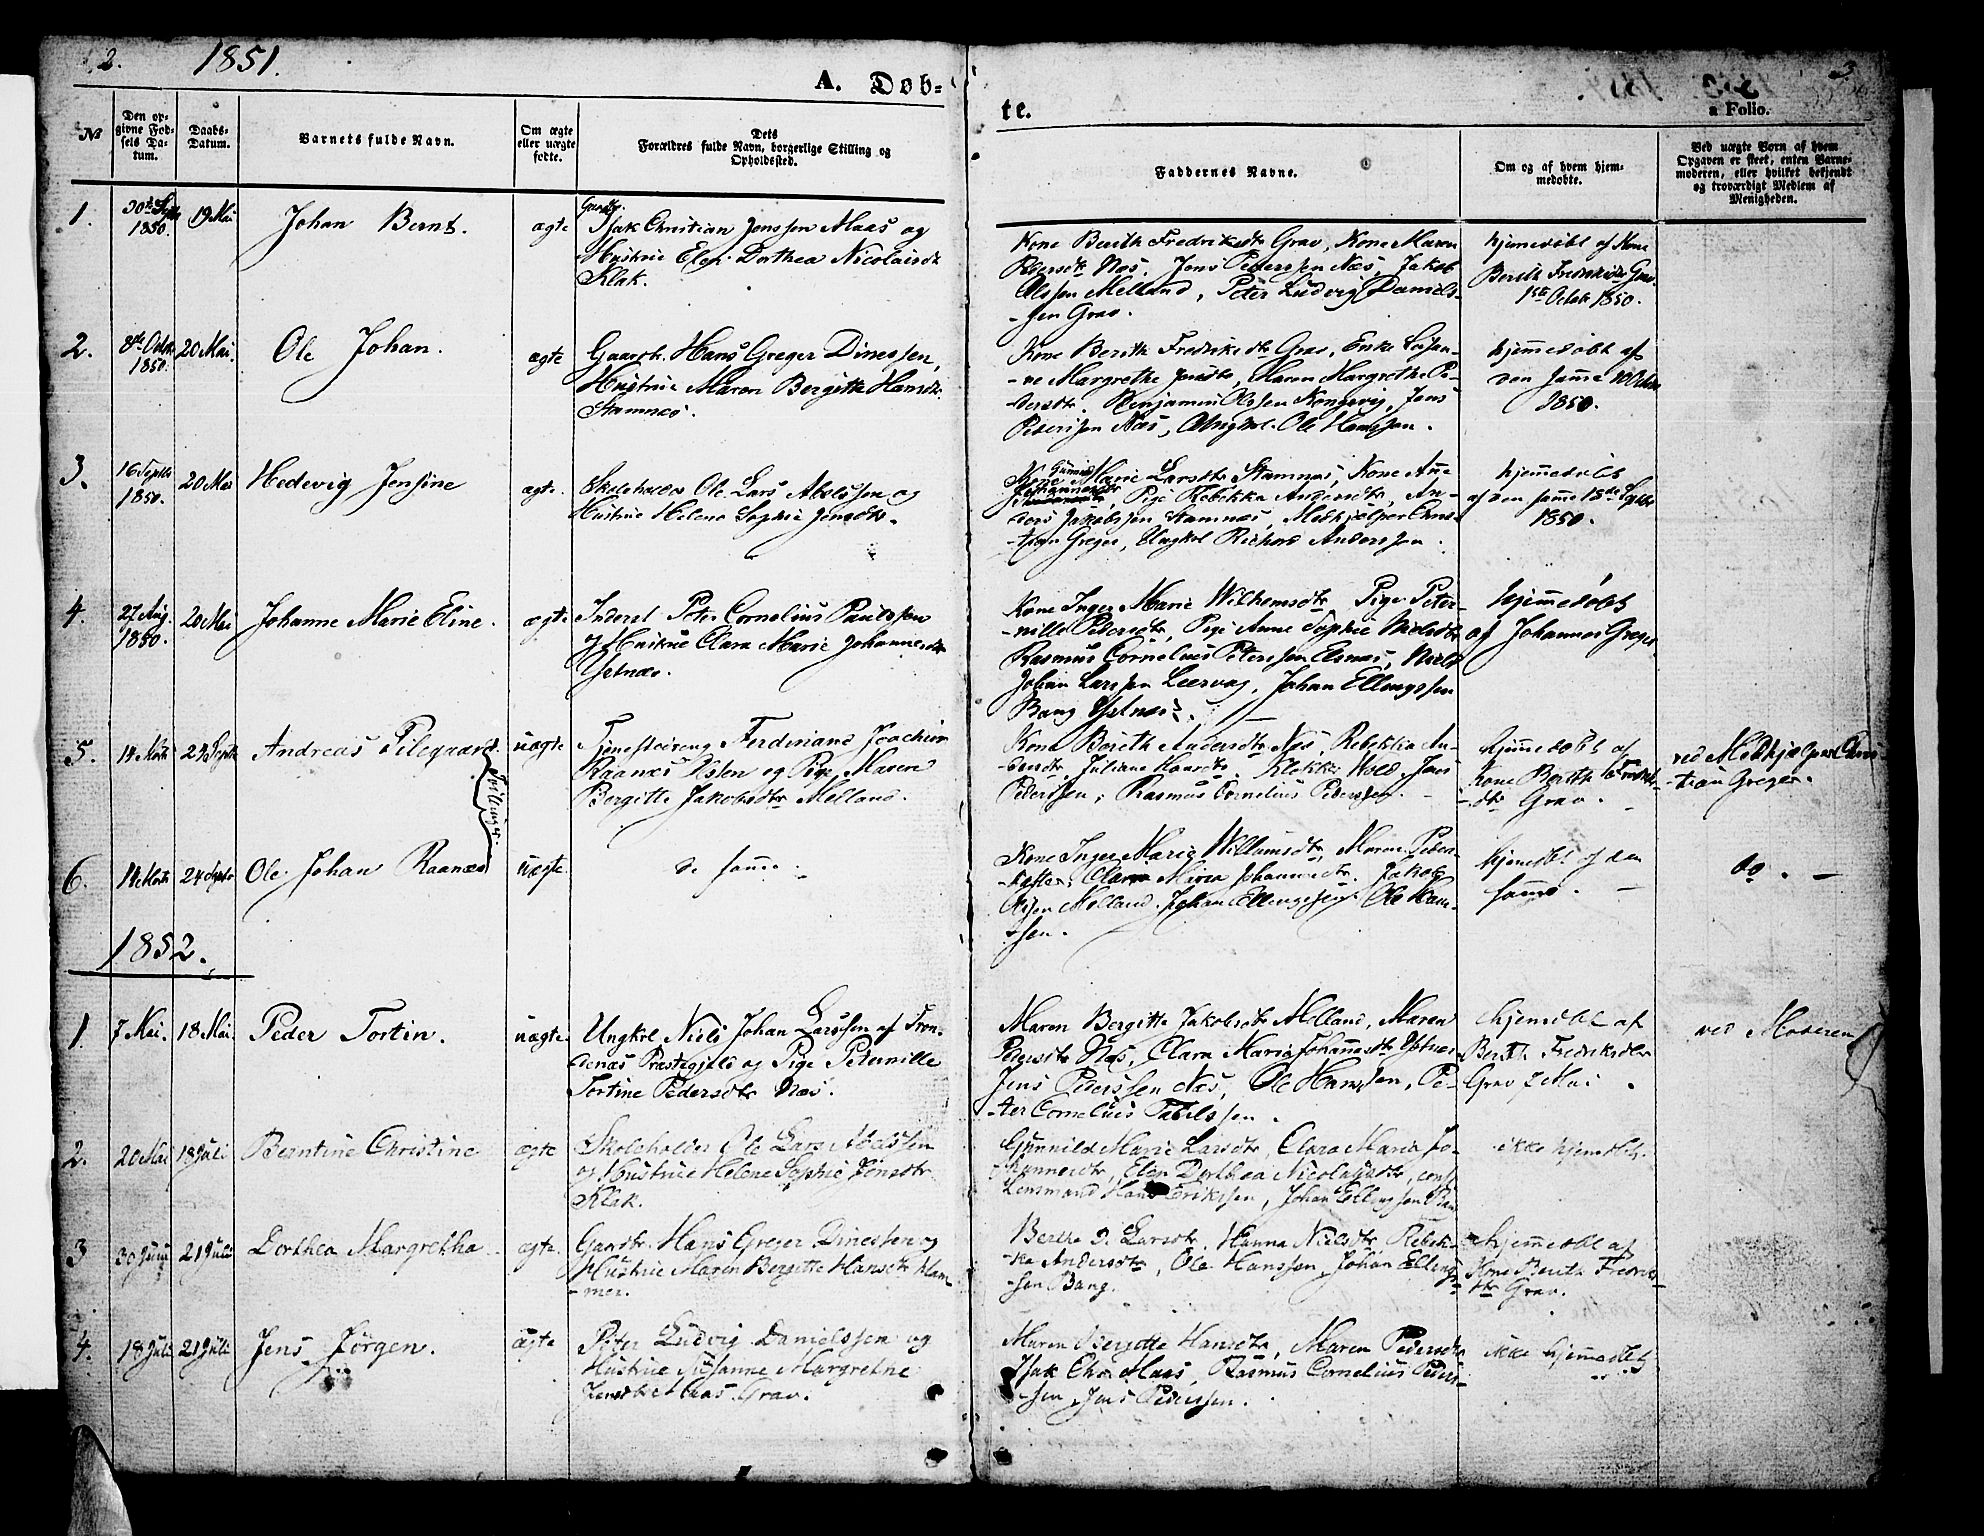 2.
1851.
A. Døb-
te.
3
a Folio.
No
Den op-
givne Fød-
sels Da-
tum.
Daabs-
Datum.
Barnets fulde Navn.
Om ægte
eller uægte
fødte.
Dets
Forældres fulde Navn, borgerlige Stilling og
Opholdssted.
Faddernes Navne.
Om og af hvem hjem-
medøbte.
Ved uægte Børn af hvem
Opgaven er skeet, enten Barne-
moderen, eller hvilket bekjendt
og troværdigt Medlem af
Menigheden.
1.
30te Septb
1850.
19 Mai
Johan Bernt.
ægte
Gaardbr.
Isak Christian Jenssen Maas og
Hustrue Elen Dorthea Nicolaisdtr
Klak.
Kone Berith Fredriksdtr Grav, Kone Maren
Pedersdtr Næs, Jens Pederssen Næs, Jakob
Olssen Melland, Peter Ludvig Daniels-
-sen Grav.
hjemmedøbt af Kone
Berith Fredriksdtr Grav
1ste Octob 1850.
2.
8de Octob
1850.
20 Mai.
Ole Johan.
ægte
Gaardb. Hans Greger Dinessen,
Hustrue Maren Bergitte Hansdtr
Stamnæs.
Kone Berith Fredriksdtr Grav, Enke Susan-
-ne Margrethe Jensdtr, Maren Margrethe Pe-
dersdtr, Benjamin Olssen Kongsvig, Jens
Pederssen Næs, Ungkal Ole Hanssen.
hjemmedøbt af
den samme 10 Octob
1850.
3.
16 Septb
1850.
20 Mai
Hedevig Jensine
ægte.
Skoleholder Ole Lars Abelssen og
Hustrue Helene Sophie Jensdtr.
Kone Marie Larsdtr Stamnæs, Kone Anne
Johannesdtr, Pige Rebekka Andersdtr, An-
ders Jakobssen Stamnæs, Medhjelper Chris-
-tian Greger, Ungkal Richard Anderssen.
hjemmedøbt
af den samme 18de Septbr
1850.
4.
27 Aug.
1850.
20 Mai
Johanne Marie Eline.
ægte
Inderst Peter Cornelius Paulssen
og Hustrue Clara Marie Johannesdtr
Ystnæs.
Kone Inger Marie Wilhemsdtr Pige Peter-
-nille Pedersdtr, Pige Anne Sophie Nielsdtr
Rasmus Cornelius Peterssen Elsnæs, Niels
Johan Larssen Leervag, Johan Ellingssen
Bang Ystnæs.
hjemmedøbt
af Johannes Greger
5.
14 Marts
24 Septb
Andreas Pilegaard
Tvillinger.
uægte
Tjenestedreng Ferdinand Joachim
Raanæs Olsten og Pige Maren
Bergitte Jakobsdtr Melland.
Kone Berith Andersdtr Næs, Rebekka An-
dersdtr, Juliane Hansdtr, Klokker Wold, Jens
Pederssen, Rasmus Cornelius Pederssen.
hjemmedøbt af
Kone Berith Fredriks-
-dtr Grav.
ved Medhjelper Chris-
-tian Greger.
6.
14 Marts
24 Septbr
Ole Johan Raanæs
uægte
de samme
Kone Inger Marie Willumsdtr, Maren Peder-
-datter, Clara Maria Johannesdtr, Jakob
Olssen Melland, Johan Ellingssen Ole Han-
-ssen.
hjemedbt af den
samme.
do.
1852.
1.
7 Mai.
18 Mai.
Peder Tortin.
uægte.
Ungkal Niels Johan Larssen af Tron-
denæs Præstegjeld og Pige Peternille
Tortine Pedersdtr Næs.
Maren Bergitte Jakobsdtr Melland, Maren
Pedersdtr Næs, Clara Maria Johannesdtr Ystnæs
Jens Pederssen Næs, Ole Hanssen, Pe-
-ter Cornelius Paulssen.
hjemedbt af
Berith Fredriksdtr
Grav 7 Mai
ved Moderen
2.
20 Mai
18 Juli
Berntine Christine
ægte
Skoleholder Ole Lars Abelssen
og Hustrue Helene Sophie Jensdtr
Klak.
Gunnild Marie Larsdtr, Clara Maria Jo-
hannesdtr, Elen Dorthea Nicolaisdtr, const
Lensmand Hans Erikssen, Johan Ellingssen Ban
ikke hjemdbt.
3
30 Juni
21 Juli
Dorthea Margretha
ægte.
Gaardbr. Hans Greger Dinessen og
Hustrue Maren Bergitte Hansdtr Klam-
-mer.
Berthe D. Larsdtr, Hanna Nielsdtr Rebek-
-ka Andersdtr, Ole Hanssen, Johan Elling-
-sen Bang.
hjemmedbt af
Kone Berith Fredriks-
dtr Grav.
4.
18 Juli
21 Juli
Jens Jørgen.
ægte
Peter Ludvig Danielssen og
Hustrue Susanne Margrethe
Jensdtr Maas Grav.
Maren Bergitte Hansdtr, Maren Pedersdtr
Isak Chr Maas, Rasmus Cornelius Peders-
-sen, Jens Pederssen.
ikke hjemmedbt